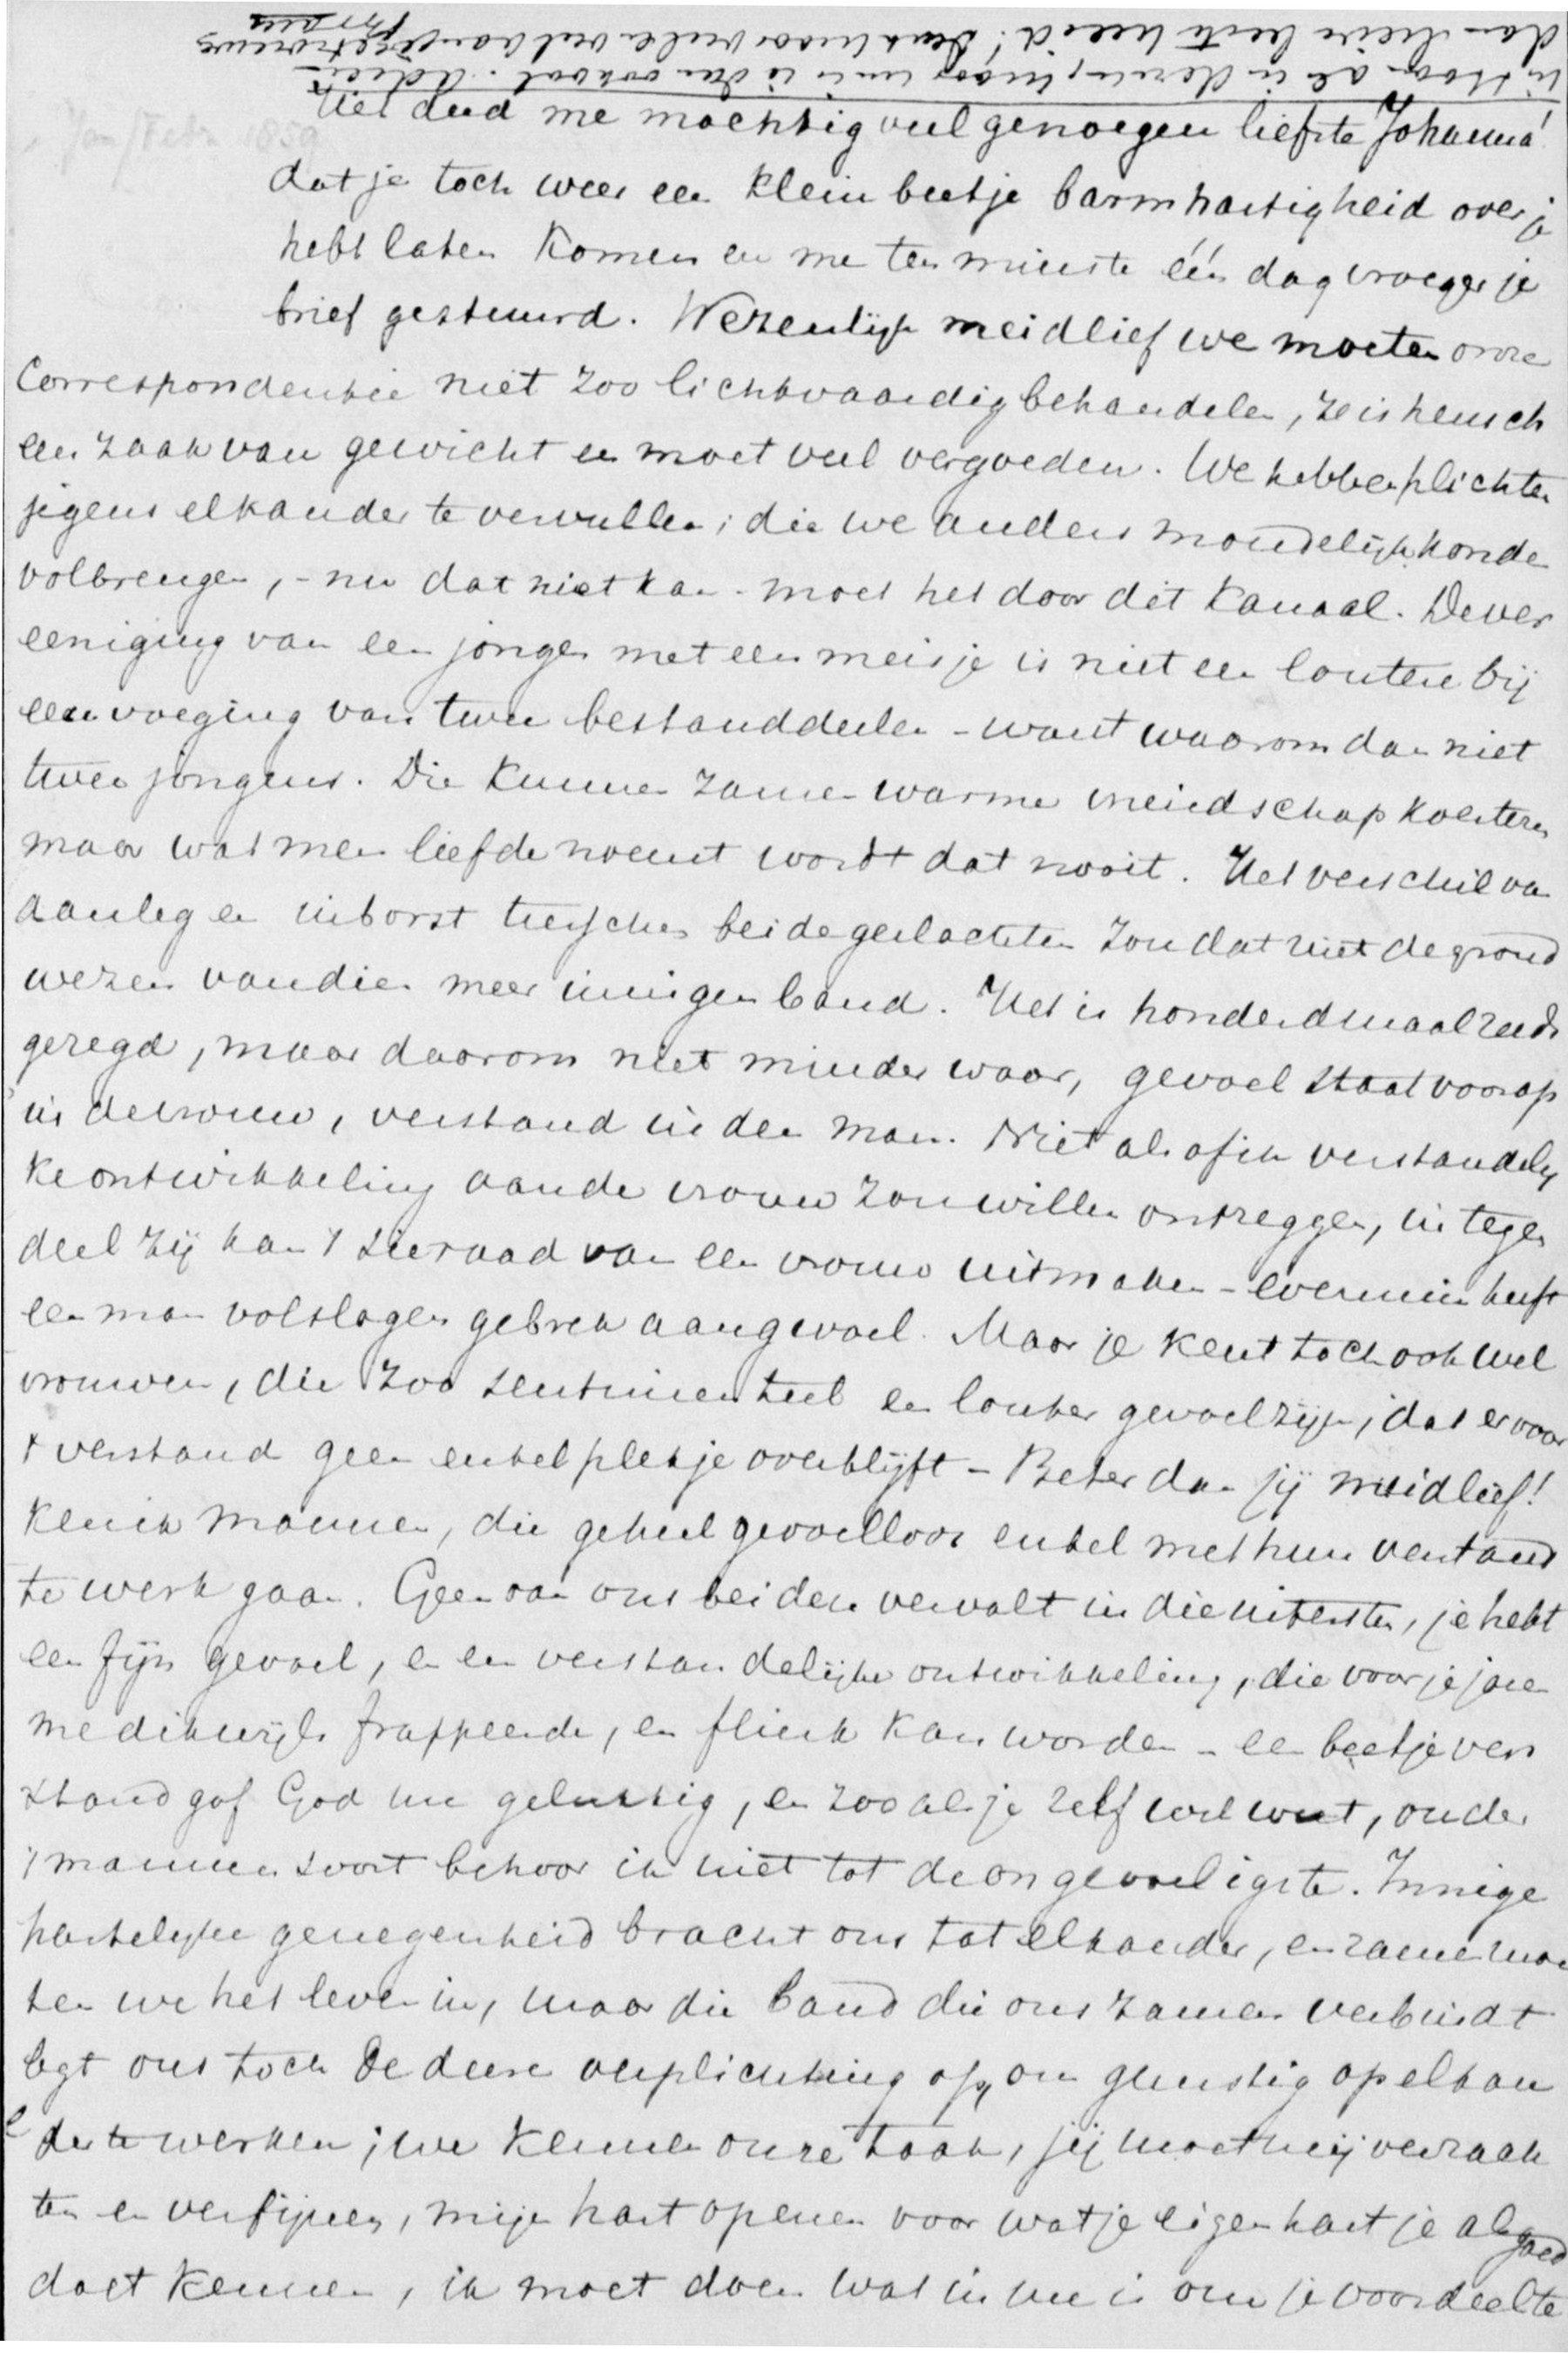 Jan/Febr. 1859
Het deed me machtig veel genoegen liefste Johanna!
dat je toch weer een klein beetje barmhartigheid over je
hebt laten komen en me ten minste één dag vroeger je
brief gestuurd. Wezenlijk meidlief we moeten onze
Correspondentie niet zoo lichtvaardig behandelen, ze is heusch
een zaak van gewicht en moet veel vergoeden. We hebben plichten
jegens elkander te vervullen, die we anders mondelijk konden
volbrengen, - nu dat niet kan - moet het door dit Kanaal. De ver
eeniging van een jongen met een meisje is niet een loutere bij
eenvoeging van twee bestanddeelen - want waarom dan niet
twee jongens. Die kunnen zamen warme vriendschap koesteren
maar wat men liefde noemt wordt dat nooit. Het verschil van
aanleg en inborst tusschen beide geslachten zou dat niet de grond
wezen van dien meer innigen band. Het is honderdmaal reeds
gezegd, maar daarom niet minder waar, gevoel staat voorop
in de vrouw, verstand in den man. Niet alsof ik verstandelij
ke ontwikkeling aan de vrouw zou willen ontzeggen, in tegen
deel zij kan 't sieraad van een vrouw uitmaken - evenmin heeft
een man volslagen gebrek aan gevoel. Maar je kent toch ook wel
vrouwen, die zoo sentimenteel en louter gevoel zijn, dat er voor
't verstand geen enkel plekje overblijft - Beter dan jij meidlief!
ken ik mannen, die geheel gevoelloos enkel met hun verstand
te werk gaan. Geen van ons beiden vervalt in die uitersten, je hebt
een fijn gevoel, en een verstandelijke ontwikkeling, die voor je jaren
me dikwijls frappeerde, en flink kan worden - een beetje ver
stand gaf God me gelukkig, en zooals je zelf wel weet, onder
't mannensoort behoor ik niet tot de ongevoeligste. Innige
hartelijke genegenheid bracht ons tot elkander, en zamen moe
ten we het leven in, maar die band die ons zamen verbindt
legt ons toch de deze verplichting op, om gunstig op elkan
der te werken; we kennen onze taak, jij moet mij verzach
ten en verfijnen, mijn hart openen voor wat je eigen hartje als goed
doet kennen, ik moet doen wat in me is om je voordeel te